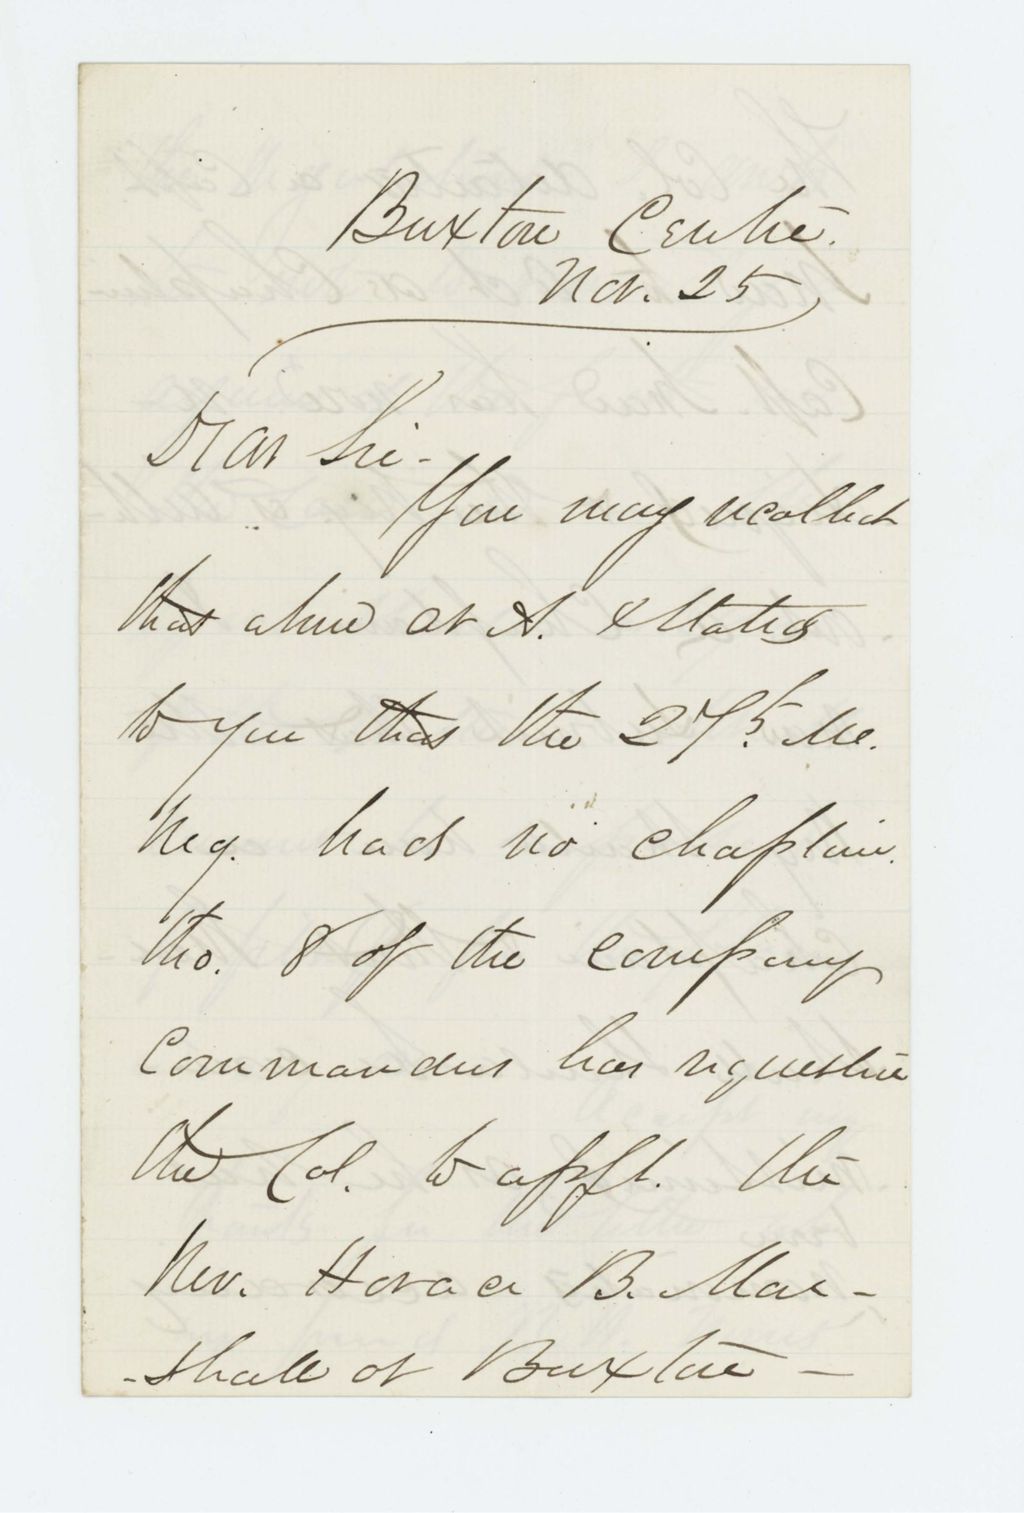 Buxton Centre.
Nov. 25
Dear Sir -
You may recollect
that when at A. I stated
to you that the 27th. Me.
Reg. had no chaplain
tho. 8 of the company
Commanders has requested
the Col. to appt. the
Rev. Horace B. Mar-
-shall of Buxton -